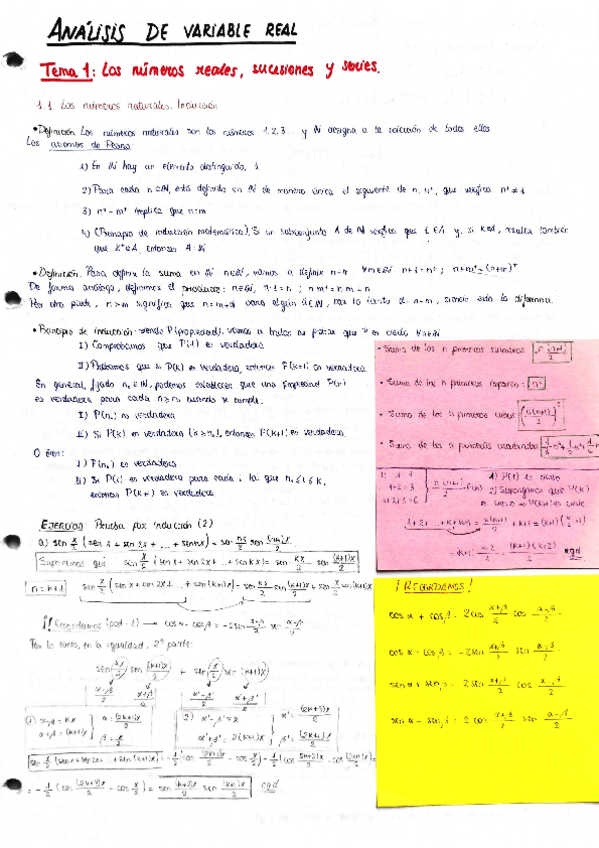 ANÁLISIS DE VARIABLE REAL
Tema 1: Los números reales, sucesiones y series.
1.1 Los números naturales. Inducción
• Definición Los números naturales son los números 1, 2, 3... y ℕ designa a la colección de todos ellos
Los axiomas de Peano:
1) En ℕ hay un elemento distinguido, 1
2) Para cada n∈ℕ, está definido en ℕ de manera única el siguiente de n, n⁺, que verifica n⁺ ≠ 1
3) n⁺ = m⁺ implica que n=m
4) (Principio de inducción matemática). Si un subconjunto A de ℕ verifica que 1∈A y, si K∈A, resulta también
que K⁺∈A, entonces A=ℕ
• Definición. Para definir la suma en ℕ n∈ℕ, vamos a definir n+m ∀m∈ℕ n+1=n⁺ ; n+m⁺=(n+m)⁺
De forma análoga, definimos el producto: n∈ℕ, n·1=n ; n·m⁺=n·m+n
Por otra parte, n>m significa que n=m+d para algún d∈ℕ, d=n-m, siendo esta la diferencia.
• Principio de inducción: siendo P (propiedad), vamos a tratar de probar que es cierto ∀n∈ℕ
I) Comprobamos que P(1) es verdadera
II) Probamos que si P(k) es verdadera, entonces P(k+1) es verdadera
En general, fijado n₀∈ℕ, podemos establecer que una propiedad P(n)
es verdadera para cada n≥n₀ cuando se cumple:
I) P(n₀) es verdadera
II) Si P(k) es verdadera (k≥n₀), entonces P(k+1) es verdadera.
O bien:
I) P(n₀) es verdadera
II) Si P(i) es verdadera para cada i tal que n₀≤i≤k,
entonces P(k+1) es verdadera
• Suma de los n primeros números: n(n+1)/2
• Suma de los n primeros impares: n²
• Suma de los n primeros cubos (n(n+1)/2)²
• Suma de los n primeros cuadrados
1+2=3
1+2+3=6
n(n+1)/2 P(n)
1) P(1) es cierto
2) Supongamos que P(k)
es cierto → P(k+1) es cierto
1+2+...+k+(k+1) = k(k+1)/2 + k+1 = (k+1)(k/2+1)
= (k+1) k+2/2 = (k+1)(k+2)/2 cqd
EJERCICIO Prueba por inducción (2)
a) sen x/2 (sen x + sen 2x + ... + sen nx) = sen nx/2 sen (n+1)x/2
Suponemos que sen x/2 (sen x + sen 2x + ... + sen kx) = sen kx/2 sen (k+1)x/2
n=k+1 sen x/2 (sen x + sen 2x + ... + sen (k+1)x) = sen kx/2 sen (k+1)x/2 + sen x/2 sen (k+1)x
¡¡ Recordamos → cos α - cos β = -2 sen α+β/2 sen α-β/2
Por lo tanto, en la igualdad, 2ª parte:
sen kx/2 sen (k+1)x/2 + sen x/2 sen (k+1)x
α-β/2 α+β/2 α'-β'/2 α'+β'/2
1) α-β = kx
α+β = (k+1)x
α = (2k+1)x/2
β = x/2
2) α'-β' = x
α'+β' = 2(k+1)x
α' = (2k+3)x/2
β' = (2k+1)x/2
sen x/2 (sen x + sen 2x + ... + sen (k+1)x) = -1/2 (cos (2k+1)x/2 - cos x/2) - 1/2 (cos (2k+3)x/2 - cos (2k+1)x/2)
= -1/2 (cos (2k+3)x/2 - cos x/2) = sen (k+2)x/2 sen (k+1)x/2 cqd
¡ RECORDAMOS !
cos α + cos β = 2 cos α+β/2 cos α-β/2
cos α - cos β = -2 sen α+β/2 sen α-β/2
sen α + sen β = 2 sen α+β/2 cos α-β/2
sen α - sen β = 2 cos α+β/2 sen α-β/2